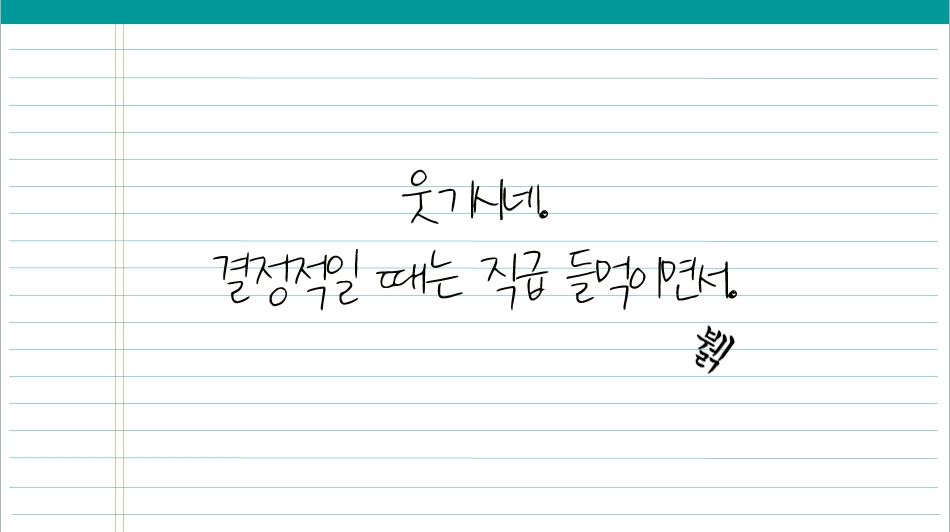 웃기시네.
결정적일 때는 직급 들먹이면서.
뷁